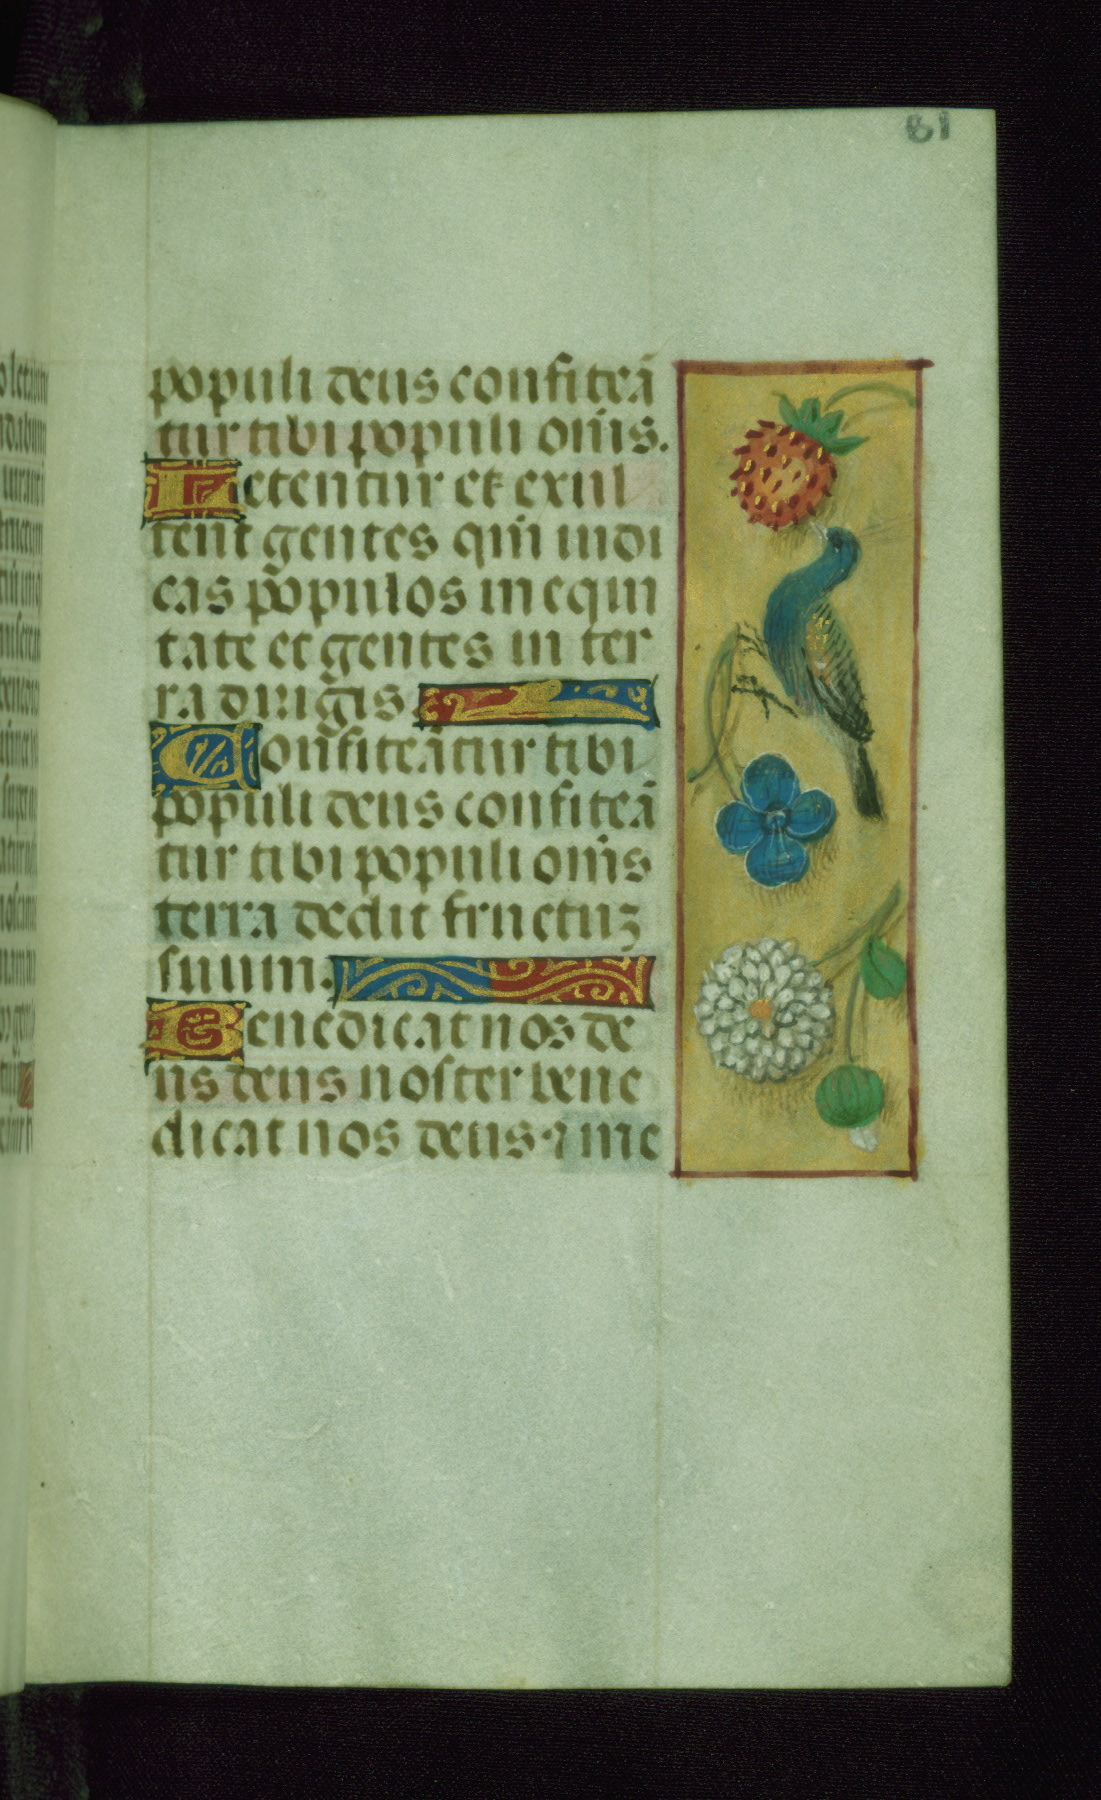 81
populi deus confiteā
tur tibi populi om̄s.
Letentur et exul
tent gentes qm̄ iudi
cas populos in equi
tate et gentes in ter
ra dirigis.
Confiteātur tibi
populi deus confiteā
tur tibi populi om̄s
terra dedit fructuꝫ
suum.
Benedicat nos de
us deus noster bene
dicat nos deus. ⁊ me